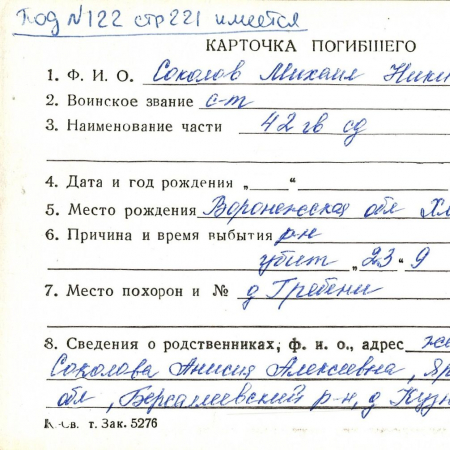 Под №122 стр 221 имеется
КАРТОЧКА ПОГИБШЕГО
1. Ф. И. О. Соколов Михаил Ники
2. Воинское звание с-т
3. Наименование части 42 гв сд
4. Дата и год рождения „ “
5. Место рождения Воронежская обл Хл
6. Причина и время выбытия р-н
убит „23“ 9
7. Место похорон и № д Гребени
8. Сведения о родственниках, ф. и. о., адрес же
Соколова Анисия Алексеевна, Яр
обл, р-н, д Кузн
К.-Св. т. Зак. 5276